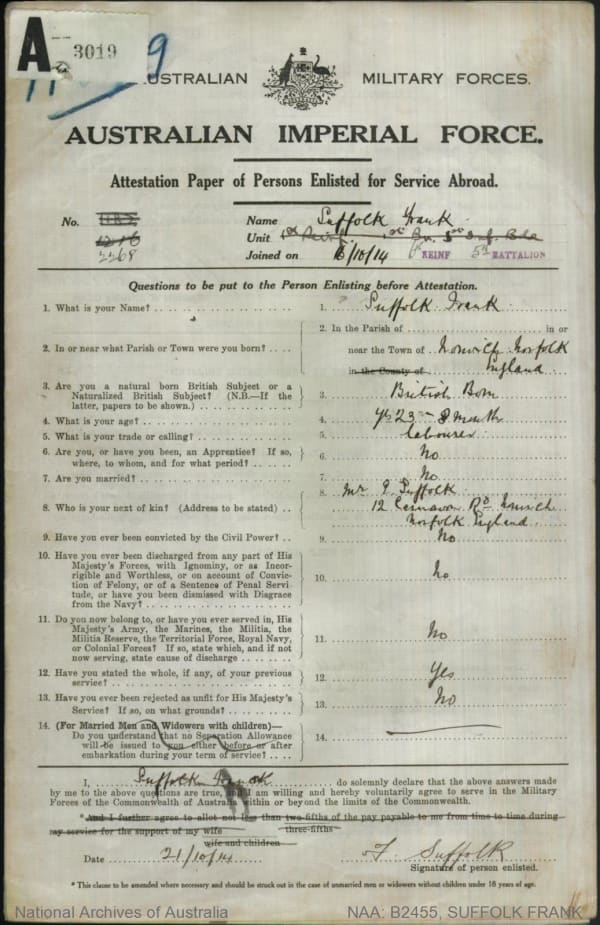 A
3019
AUSTRALIAN MILITARY FORCES.
AUSTRALIAN IMPERIAL FORCE.
Attestation Paper of Persons Enlisted for Service Abroad.
No.
2268
Name Suffolk Frank
Unit
Joined on 16/10/14 6th REINF 5th BATTALION
Questions to be put to the Person Enlisting before Attestation.
1. What is your Name? 1. Suffolk Frank
2. In or near what Parish or Town were you born? 2. In the Parish of in or
near the Town of Norwich Norfolk
in the County of England
3. Are you a natural born British Subject or a
Naturalized British Subject? (N.B.—If the
latter, papers to be shown.) 3. British Born
4. What is your age? 4. yrs 23 8 month
5. What is your trade or calling? 5. labourer
6. Are you, or have you been, an Apprentice? If so,
where, to whom, and for what period? 6. No
7. Are you married? 7. No
8. Who is your next of kin? (Address to be stated) 8. Mr Suffolk
12 Rd Norwich
Norfolk England
9. Have you ever been convicted by the Civil Power? 9. No
10. Have you ever been discharged from any part of His
Majesty's Forces, with Ignominy, or as Incor-
rigible and Worthless, or on account of Convic-
tion of Felony, or of a Sentence of Penal Servi-
tude, or have you been dismissed with Disgrace
from the Navy? 10. No
11. Do you now belong to, or have you ever served in, His
Majesty's Army, the Marines, the Militia, the
Militia Reserve, the Territorial Force, Royal Navy,
or Colonial Forces? If so, state which, and if not
now serving, state cause of discharge 11. No
12. Have you stated the whole, if any, of your previous
service? 12. Yes
13. Have you ever been rejected as unfit for His Majesty's
Service? If so, on what grounds? 13. No
14. (For Married Men and Widowers with children)—
Do you understand that no Separation Allowance
will be issued to you either before or after
embarkation during your term of service? 14.
I, Suffolk Frank do solemnly declare that the above answers made
by me to the above questions are true, and I am willing and hereby voluntarily agree to serve in the Military
Forces of the Commonwealth of Australia within or beyond the limits of the Commonwealth.
*And I further agree to allot not less than two-fifths of the pay payable to me from time to time during
my service for the support of my wife three-fifths
wife and children
Date 21/10/14 F. Suffolk
Signature of person enlisted.
* This clause to be amended where necessary and should be struck out in the case of unmarried men or widowers without children under 18 years of age.
National Archives of Australia NAA: B2455, SUFFOLK FRANK